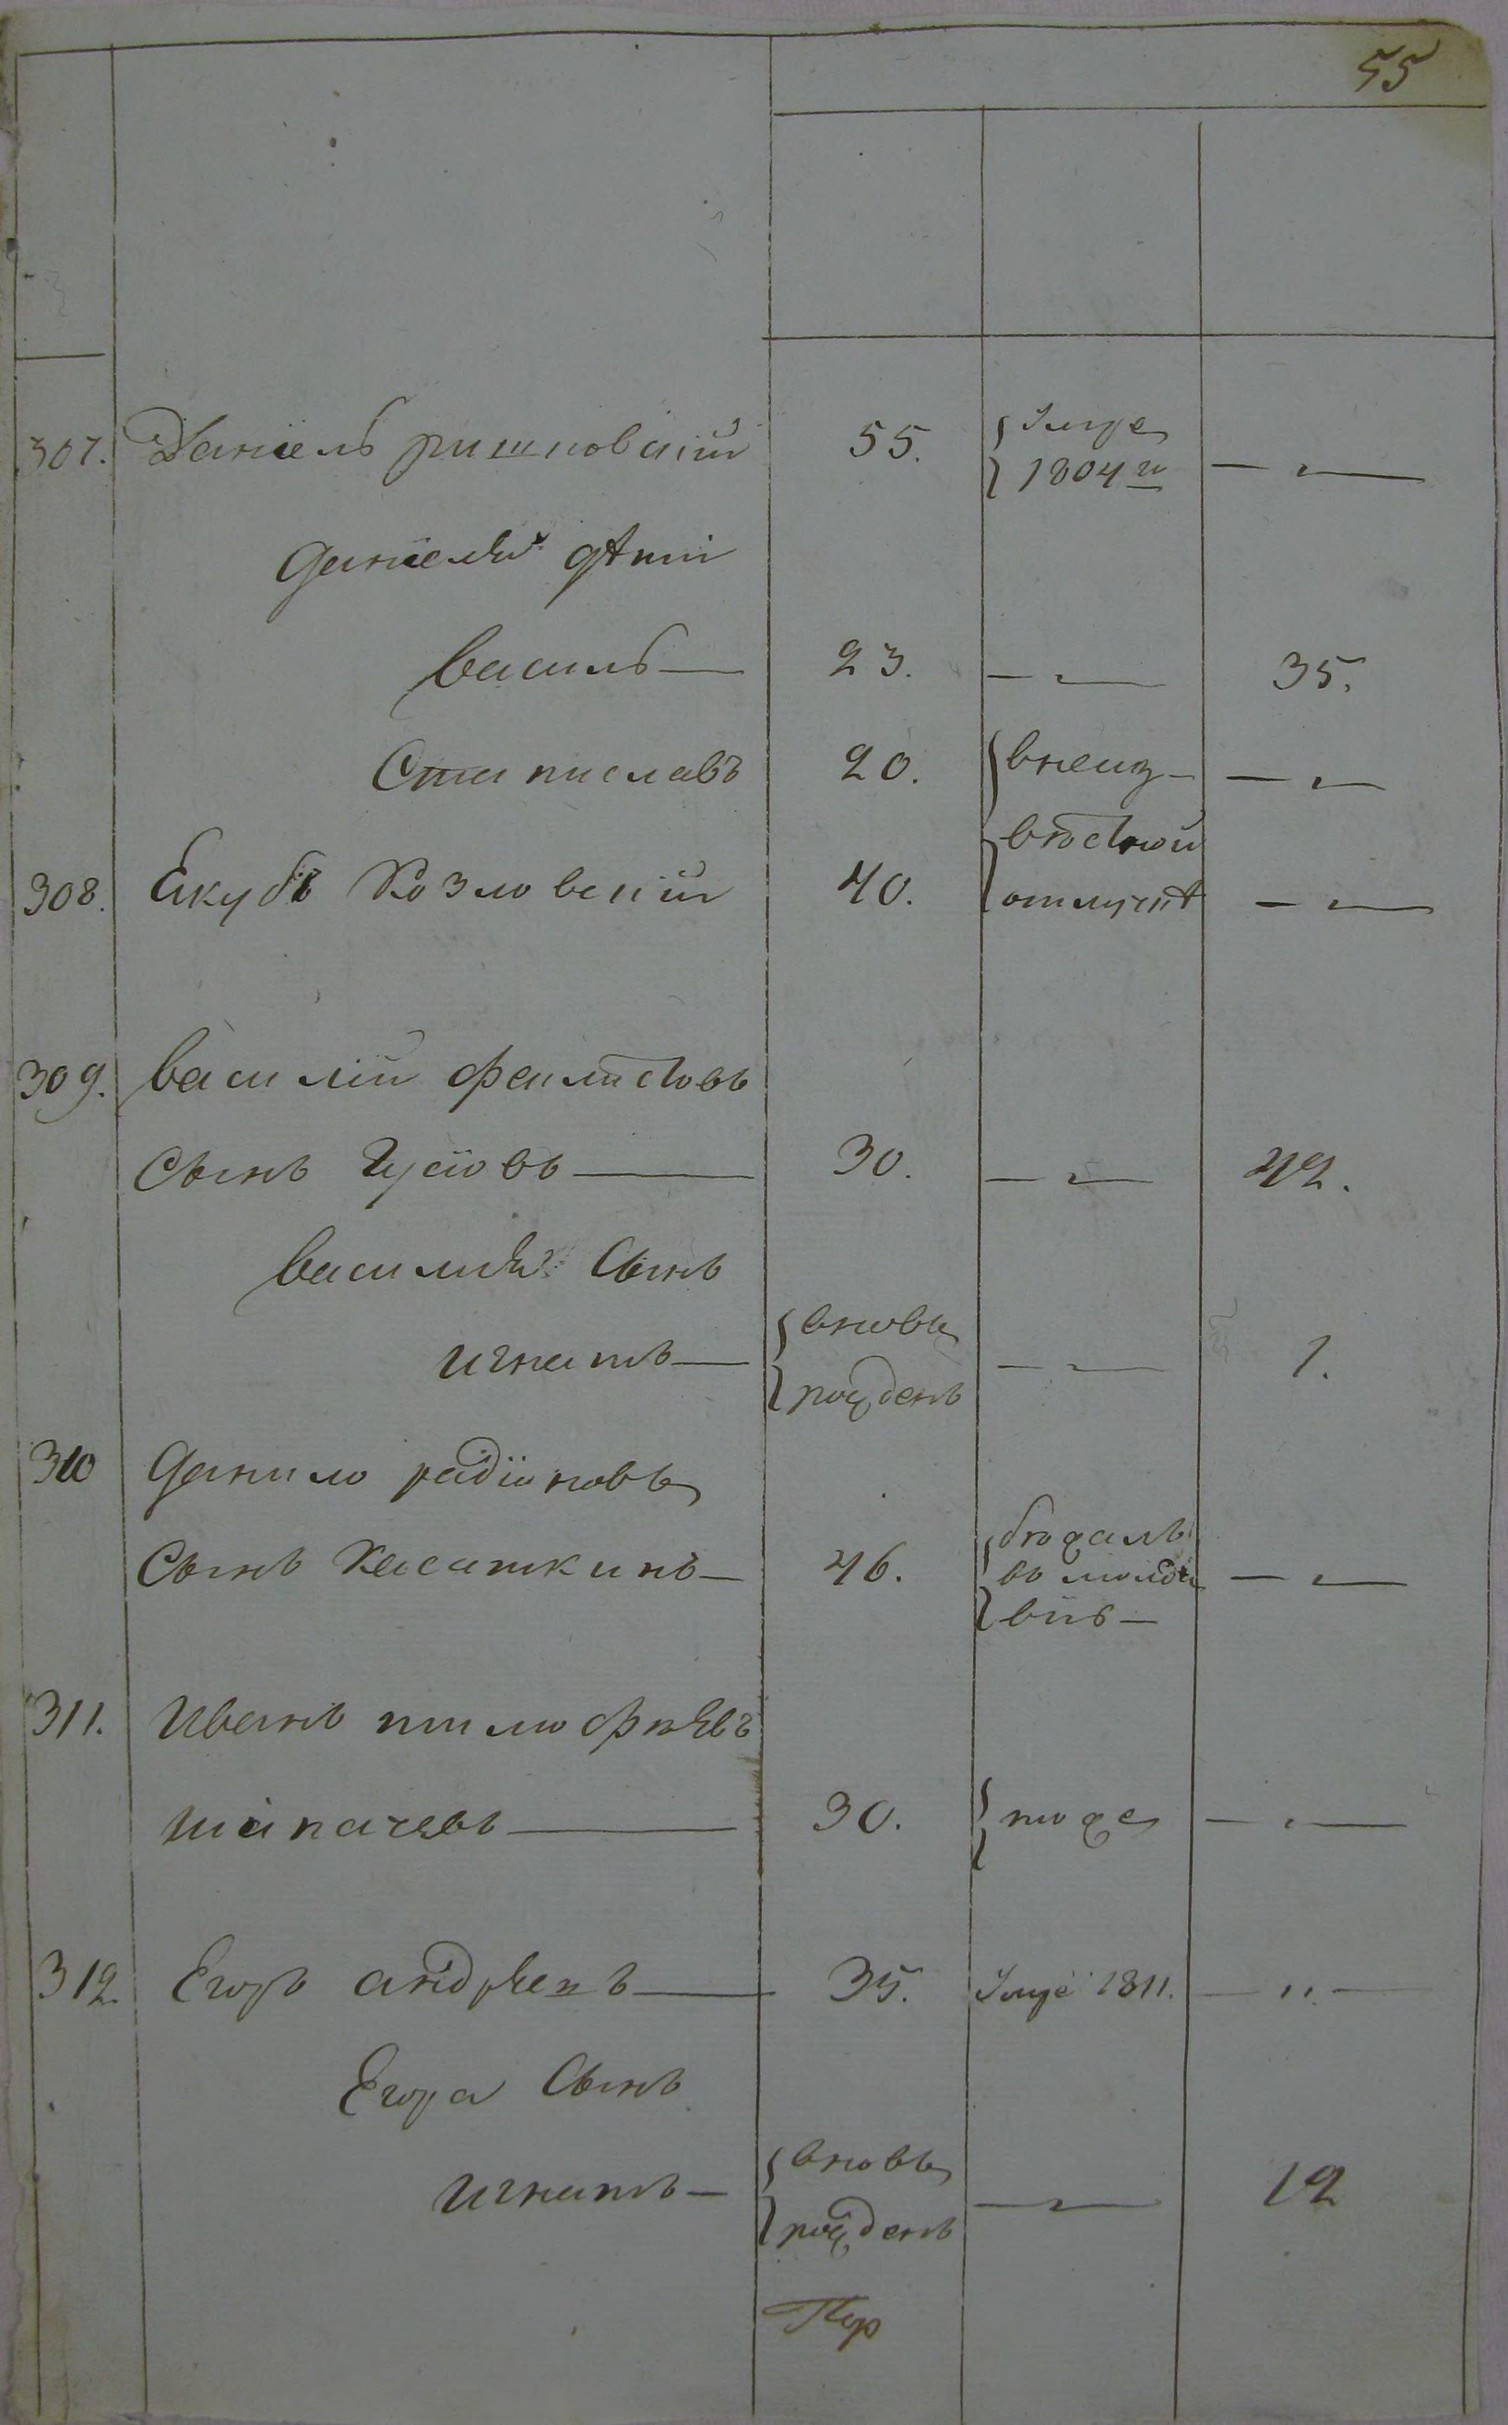 55
307. Даніелъ ришковскій 55. умре 1804 го
Даніеля дѣти
василь 23. 35.
Станиславъ 20. внеиз-
вѣстной
308. Якубъ Козловскій 40. отлучкѣ
309. василій филатовъ
Сынъ Гусовъ 30. 42.
василія Сынъ
игнатъ вновь рожденъ 1.
310 Данило радіоновъ
Сынъ Касаткинъ 46. бѣжалъ
въ молда
вію
311. Иванъ тимофѣевъ
30. тоже
312 Егоръ андреевъ 35. умре 1811.
Егора Сынъ
игнатъ вновь рожденъ 12